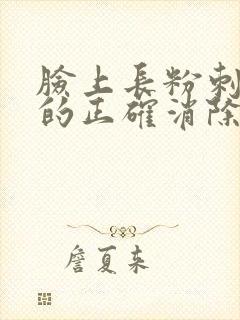 臉上長粉刺
的正確消除
詹夏来